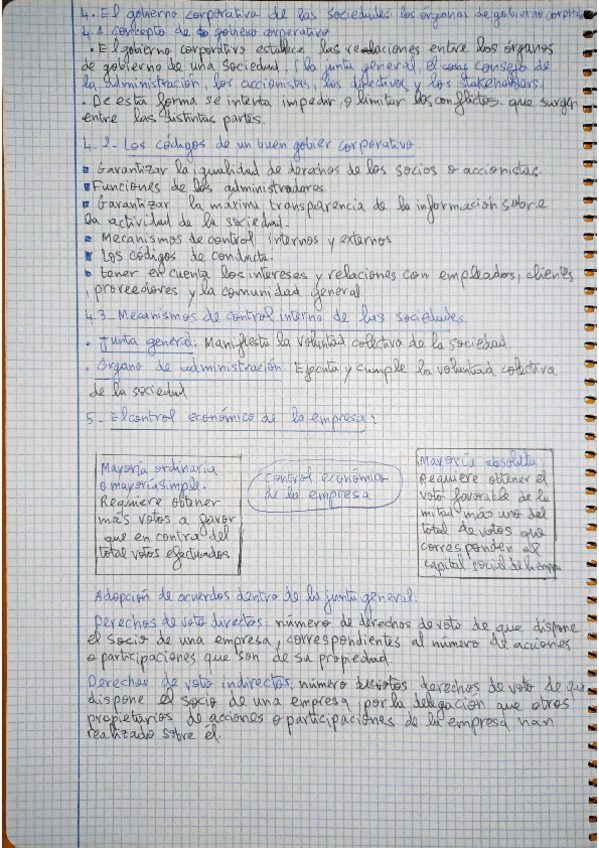 4. El gobierno corporativo de las sociedades: los órganos de gobierno corporativo
4.1 concepto de gobierno corporativo
• El gobierno corporativo establece las relaciones entre los órganos
de gobierno de una sociedad: (la junta general, el consejo de
la administración, los accionistas, los directivos y los stakeholders)
• De esta forma se intenta impedir, o limitar los conflictos que surgen
entre las distintas partes.
4.2. Los códigos de un buen gobier corporativo.
Garantizar la igualidad de derechos de los socios o accionistas.
Funciones de los administradores
Garantizar la máxima transparencia de la información sobre
la actividad de la sociedad.
Mecanismos de control internos y externos
Los códigos de conducta.
tener en cuenta los intereses y relaciones con empleados, clientes
, proveedores y la comunidad general
4.3_ Mecanismos de control interno de las sociedades.
• Junta general: Manifiesta la voluntad colectiva de la sociedad.
• Órgano de administración: Ejecuta y cumple la voluntad colectiva
de la sociedad
5_ El control económico de la empresa:
Mayoría ordinaria
o mayoría simple.
Requiere obtener
más votos a favor
que en contra del
total votos efectuados
control económico
de la empresa
Mayoría absoluta:
Requiere obtener el
voto favorable de la
mitad más uno del
total de votos que
corresponden al
capital social de la empre
Adopción de acuerdos dentro de la junta general.
Derechos de voto directos: número de derechos de voto de que dispone
el socio de una empresa, correspondientes al número de acciones
o participaciones que son de su propiedad.
Derechos de voto indirectos: número derechos de voto de que
dispone el socio de una empresa, por la delegación que otros
propietarios de acciones o participaciones de la empresa han
realizado sobre él.